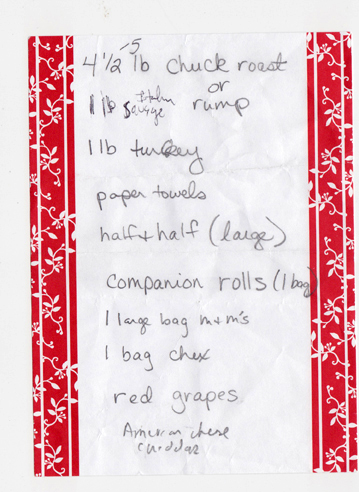 4 1/2 -5 lb chuck roast
or
1 lb Italian sausage rump
1 lb turkey
paper towels
half + half (large)
companion rolls (1 bag)
1 large bag m+m's
1 bag chex
red grapes
American cheese
cheddar